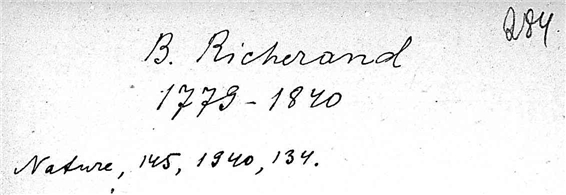 284.
B. Richerand
1779-1840
Nature, 145, 1940, 134.